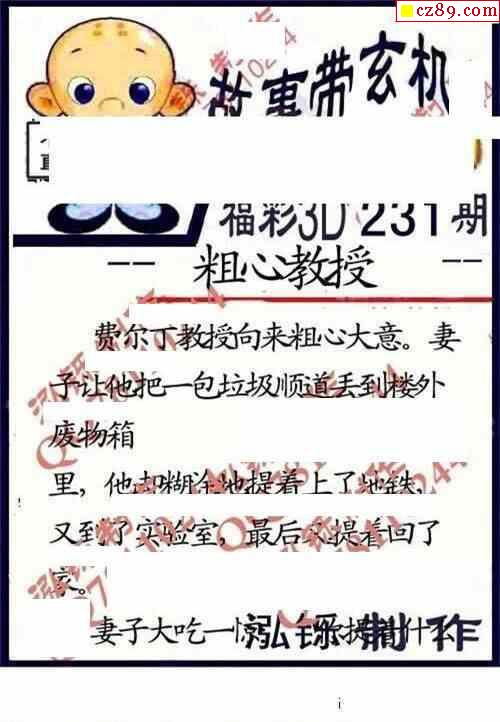 cz89.com
故事带玄机
福彩3D 231期
-- 粗心教授 --
费尔丁教授向来粗心大意。妻
子让他把一包垃圾顺道丢到楼外
废物箱
里，他却糊涂地提着上了地铁，
又到了实验室，最后又提着回了
家。
妻子大吃一惊 提着什么
泓铄制作